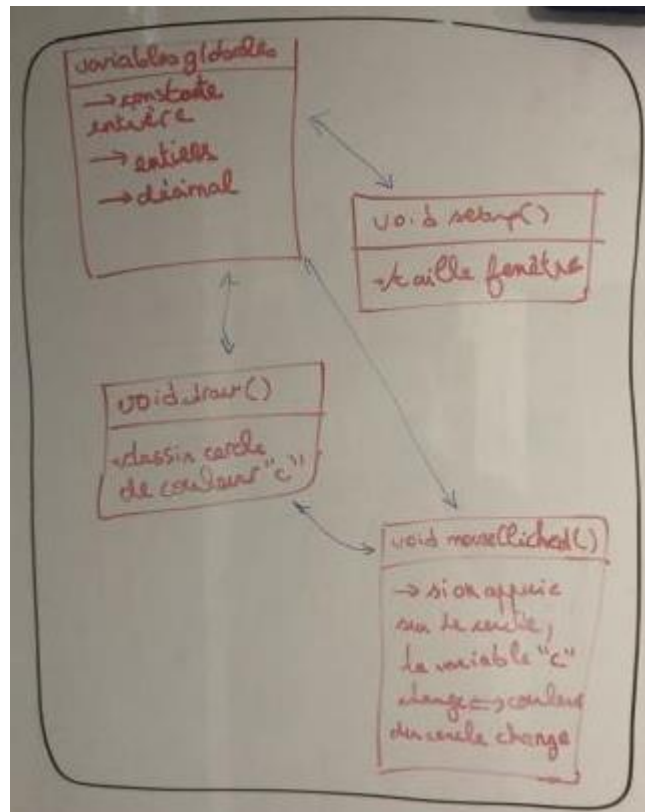 variables globales
→ constante
entière
→ entiers
→ décimal
void setup()
→ taille fenêtre
void draw()
→ dessin cercle
de couleur "c"
void mouseClicked()
→ si on appuie
sur le cercle,
la variable "c"
change ⇔ couleur
du cercle change